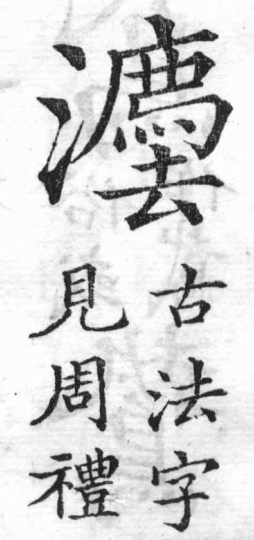 灋
古法字
見周禮